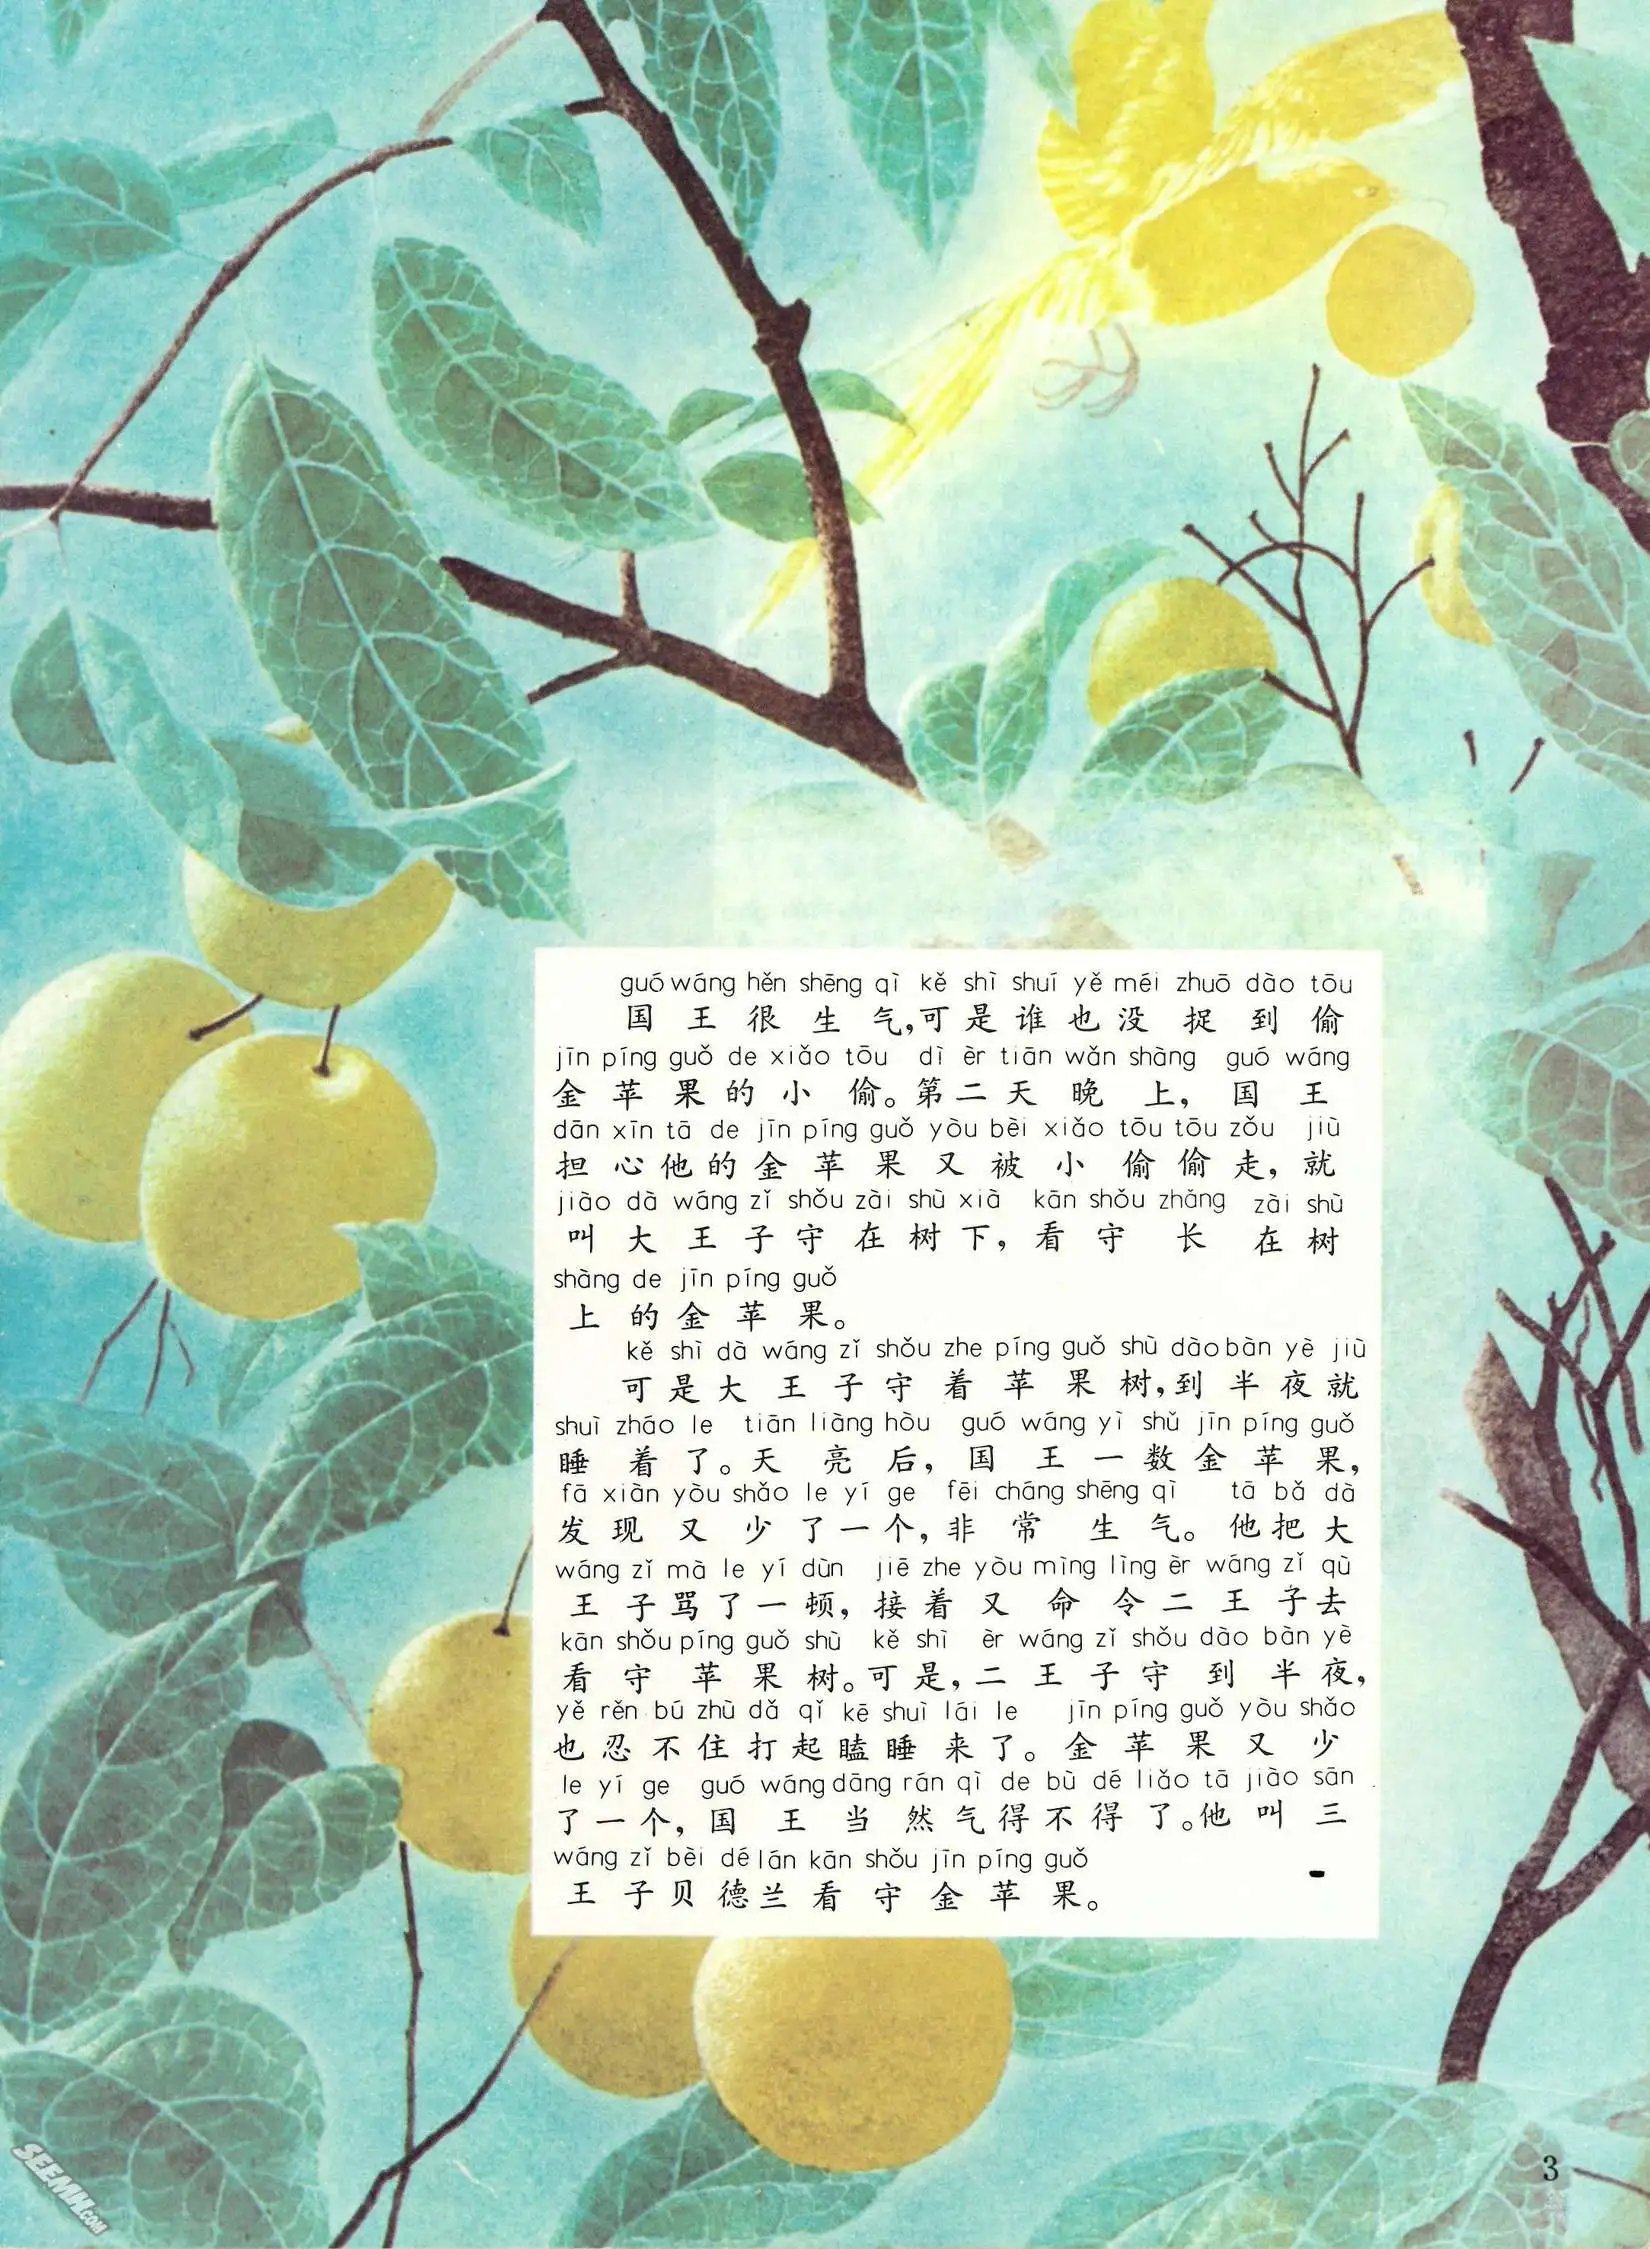 guó wáng hěn shēng qì kě shì shuí yě méi zhuō dào tōu
国王很生气,可是谁也没捉到偷
jīn píng guǒ de xiǎo tōu dì èr tiān wǎn shàng guó wáng
金苹果的小偷。第二天晚上,国王
dān xīn tā de jīn píng guǒ yòu bèi xiǎo tōu tōu zǒu jiù
担心他的金苹果又被小偷偷走,就
jiào dà wáng zǐ shǒu zài shù xià kān shǒu zhǎng zài shù
叫大王子守在树下,看守长在树
shàng de jīn píng guǒ
上的金苹果。
kě shì dà wáng zǐ shǒu zhe píng guǒ shù dào bàn yè jiù
可是大王子守着苹果树,到半夜就
shuì zháo le tiān liàng hòu guó wáng yì shǔ jīn píng guǒ
睡着了。天亮后,国王一数金苹果,
fā xiàn yòu shǎo le yí ge fēi cháng shēng qì tā bǎ dà
发现又少了一个,非常生气。他把大
wáng zǐ mà le yí dùn jiē zhe yòu mìng lìng èr wáng zǐ qù
王子骂了一顿,接着又命令二王子去
kān shǒu píng guǒ shù kě shì èr wáng zǐ shǒu dào bàn yè
看守苹果树。可是,二王子守到半夜,
yě rěn bú zhù dǎ qǐ kē shuì lái le jīn píng guǒ yòu shǎo
也忍不住打起瞌睡来了。金苹果又少
le yí ge guó wáng dāng rán qì de bù dé liǎo tā jiào sān
了一个,国王当然气得不得了。他叫三
wáng zǐ bèi dé lán kān shǒu jīn píng guǒ
王子贝德兰看守金苹果。
3
SEEMH.COM